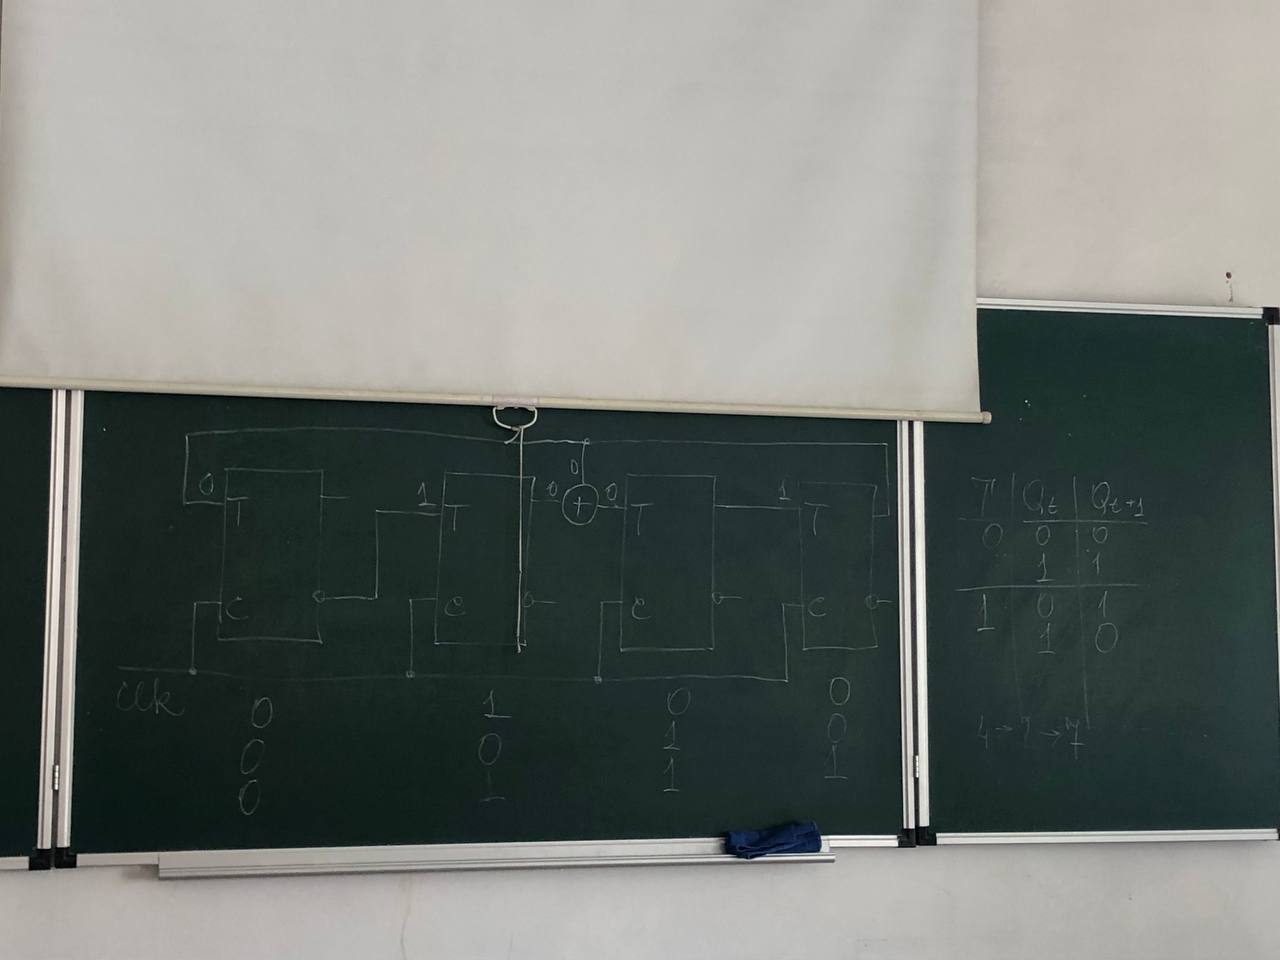 0 T C
1 T C
0 0 + 0 T C
1 T C
clk
0 1 0 0
0 0 1 0
0 1 1 1
T Qt Qt+1
0 0 0
1 1
1 0 1
1 0
4 → 2 → 7